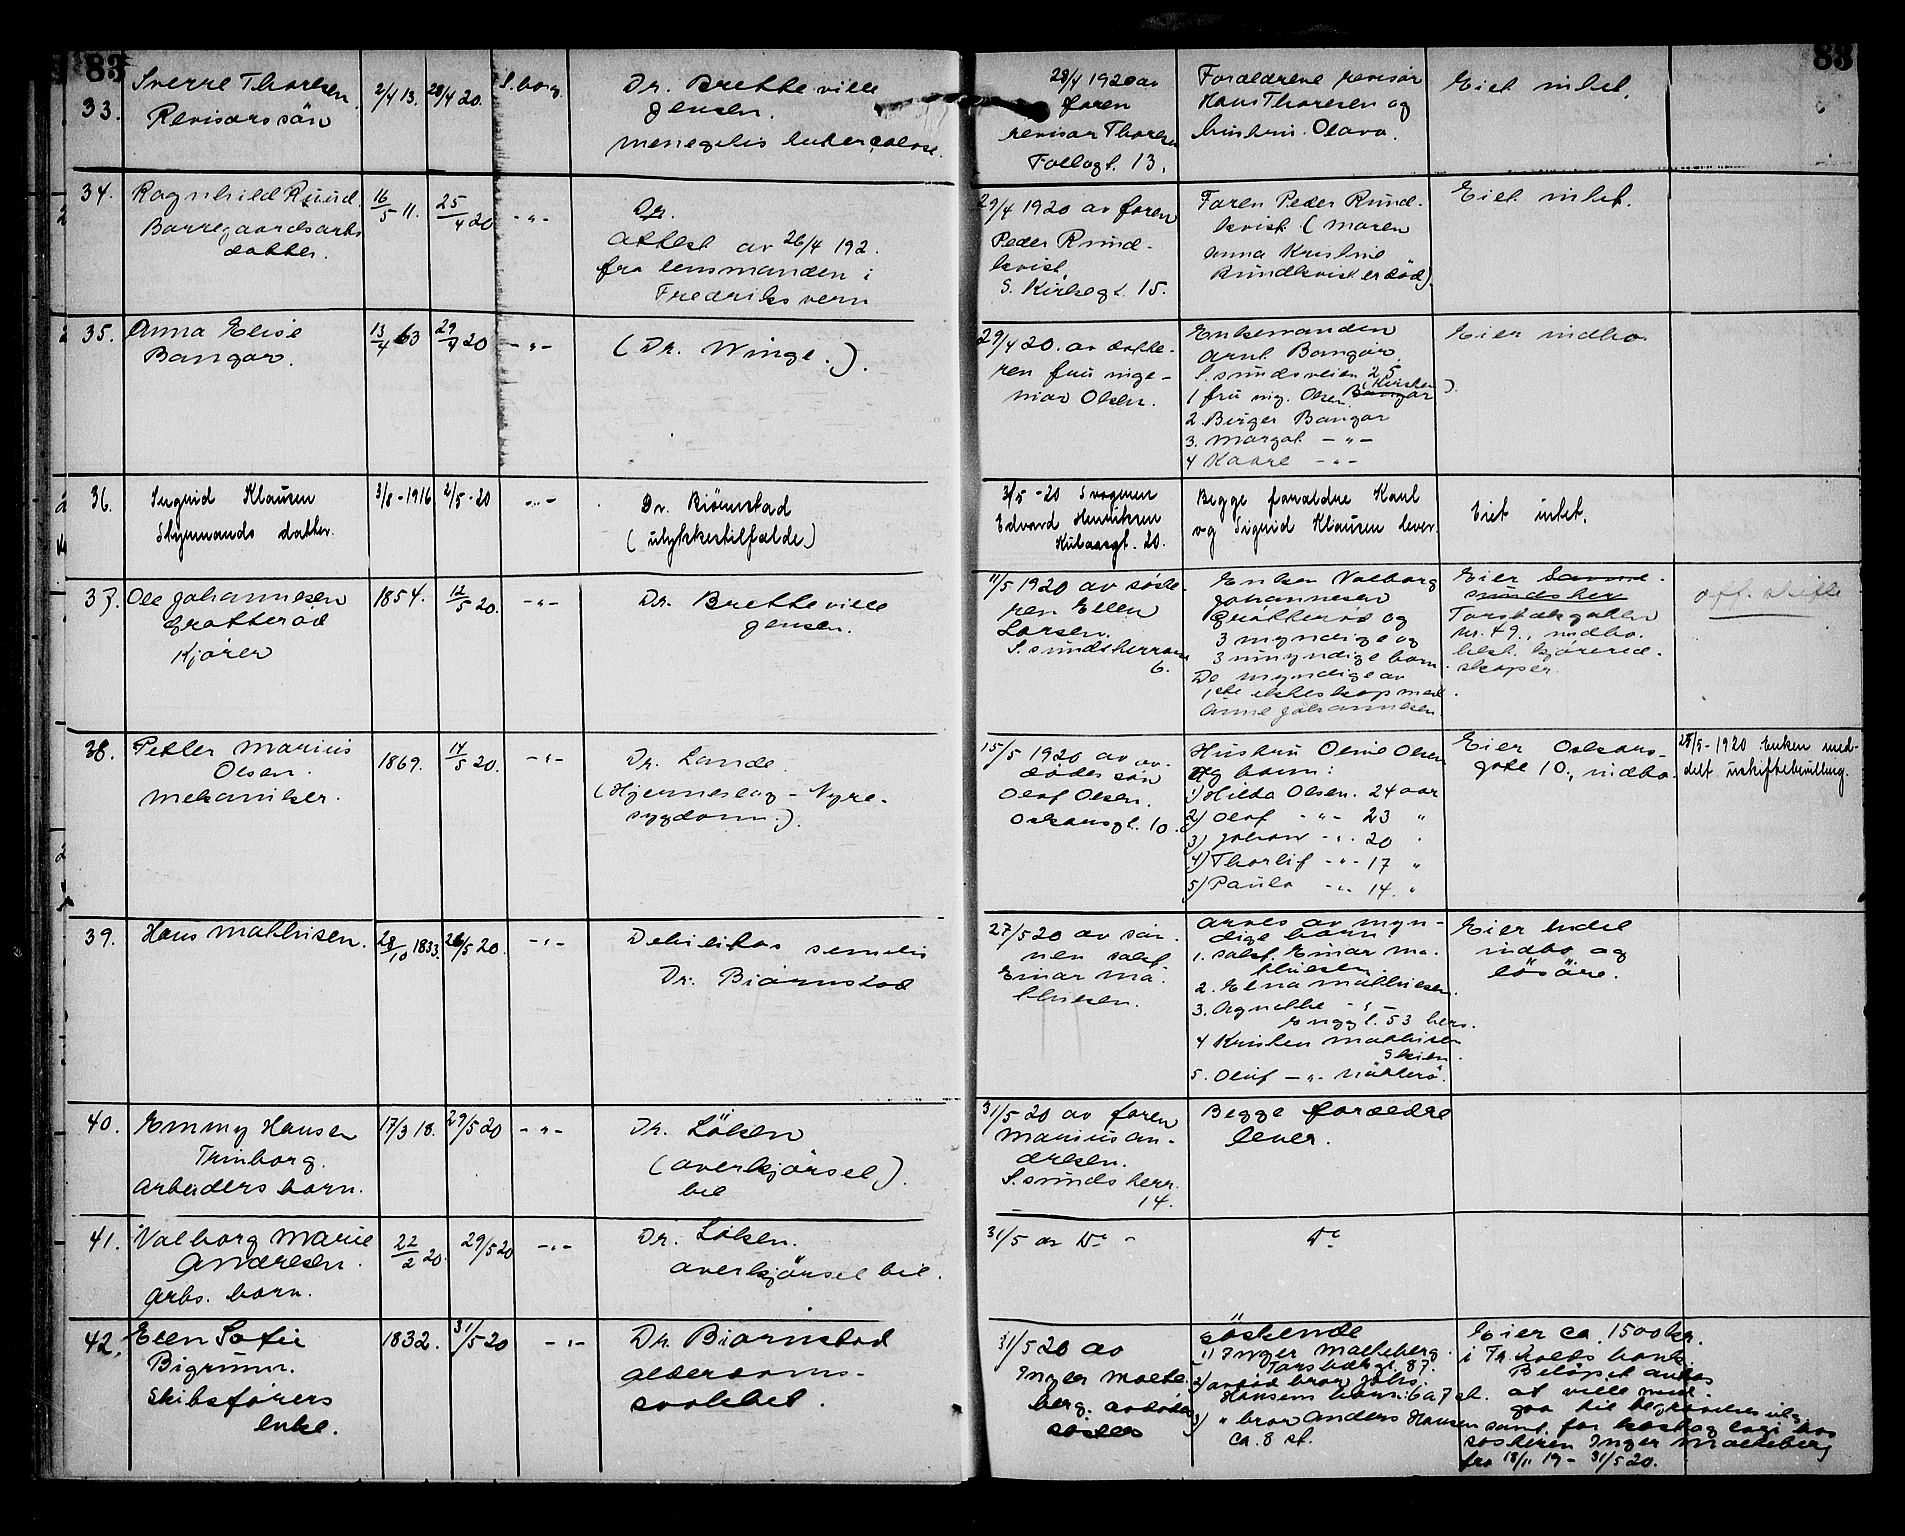 83 83
33. Sverre Thoresen 2/4 13. 28/4 20. S.borg. Dr. Bretteville
Revisors sön Jensen.
menegitis tuberculose.
28/4 1920 av
faren
revisor Thoresen
Follogt. 13.
Forældrene revisor
Hans Thoresen og
hustru Olava.
Eiet intet.
34. Ragnhild Rund
Borregaardsarb.
datter.
16/5 11. 25/4 20 - " -
Dr.
Attest av 26/4 192.
fra lensmanden i
Fredriksvern
29/4 1920 av faren
Peder Rund-
kvist,
S. Kirkegt. 15.
Faren Peder Rund-
kvist (moren
Anna Kristine
Rundkvist er död)
Eiet intet.
35. Anna Elise
Bangar.
13/4 63 29/4 20 - " -
(Dr. Winge.).
29/4 20. av datte-
ren fru inge-
niør Olsen.
Enkemanden
Arnt Bangar
S.sundsveien 25
1 fru ing. Olsen Bangar (Kirsten)
2. Birger Bangar
3. Margot - " -
4 Kaare - " -
Eier indbo.
36. Sigrid Klausen
Styrmands datter.
3/8 - 1916 2/5 - 20 - " -
Dr. Biörnstad
(ulykkestilfælde)
3/5 - 20 Svogeren
Edvard Henriksen
Kulaasgt. 20.
Begge forældre Karl
og Sigrid Klausen lever.
Eiet intet.
37. Ole Johannesen
Gratteröd
Kjörer
1854. 12/5 20. - " -
Dr. Bretteville
Jensen.
11/5 1920 av söste-
ren Ellen
Larsen.
S.sundsherrom
6.
Enken Valborg
Johannesen
Gratteröd og
3 myndige og
3 umyndige barn
De myndige av
1ste ekteskap med
Anne Johannesen
Eier
Torsbækgaten
nr. 49., indbo.
best. kjörered-
skaper.
off. skifte
38. Petter Marius
Olsen.
Mekaniker.
1869. 14/5 20. - " -
Dr. Lande.
(Hjerneslag - Nyre-
sygdom.).
15/5 1920 av av-
dødes sön
Olaf Olsen.
Oskarsgt. 10.
Hustru Oline Olsen
og barn:
1) Hilda Olsen. 24 aar
2) Olaf - " - 23 "
3) Johan - " - 20 "
4) Thorlif - " - 17 "
5) Paula - " - 14 "
Eier Oskars-
gate 10., indbo.
28/5 - 1920 Enken med-
delt uskiftebevilling.
39. Hans Mathisen.
28/10 1833. 26/5 20. - " -
Debilitas senilis
Dr. Biörnstad
27/5 20 av søn-
nen
Einar Ma-
thiesen.
Arves av myn-
dige barn
1. Einar Ma-
thiesen
2. Elna Mathiesen.
3. Agnethe - " -
53 hers.
4 Kristen Mathisen
Skien.
5. Oluf - " - Nötterö.
Eier endel
indbo og
lösöre.
40. Emmy Hansen
Trinborg.
Arbeiders barn.
17/3 18. 29/5 20 - " -
Dr. Löken
(overkjörsel).
bil
31/5 20 av faren
Marius An-
dresen.
S.sunds herr.
14.
Begge forældre
lever.
41. Valborg Marie
Andresen.
Arbs. barn.
22/2 20. 29/5 20 - " -
Dr. Löken.
overkjörsel bil.
31/5 av Do "
Do
42. Ellen Sofie
Bigrumm.
Skibsförers
enke.
1832. 31/5 20 - " -
Dr. Biörnstad
Alderdoms-
svakhet.
31/5 20 av
Inger Malte-
berg. avdødes
søster
Söskende
1) Inger Malteberg.
Torsbækgt. 87.
2) avdød bror Johs.
Hansens barn: 6 a 7 st.
3) " bror Anders Hansen
ca. 8 st.
Eier ca. 1500 kr.
i bank.
Belöpet antas
at ville med-
gaa til begravelsesutg.
samt. for kost og losi hos
søsteren Inger Malteberg
fra 18/11 19 - 31/5 20.